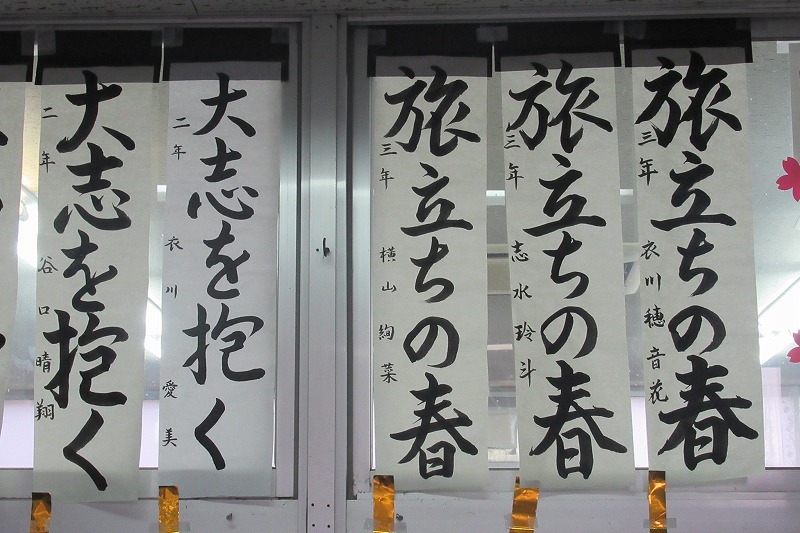 旅立ちの春
三年 衣川穂音花
旅立ちの春
三年 志水玲斗
旅立ちの春
三年 横山絢菜
大志を抱く
二年 衣川愛美
大志を抱く
二年 谷口晴翔